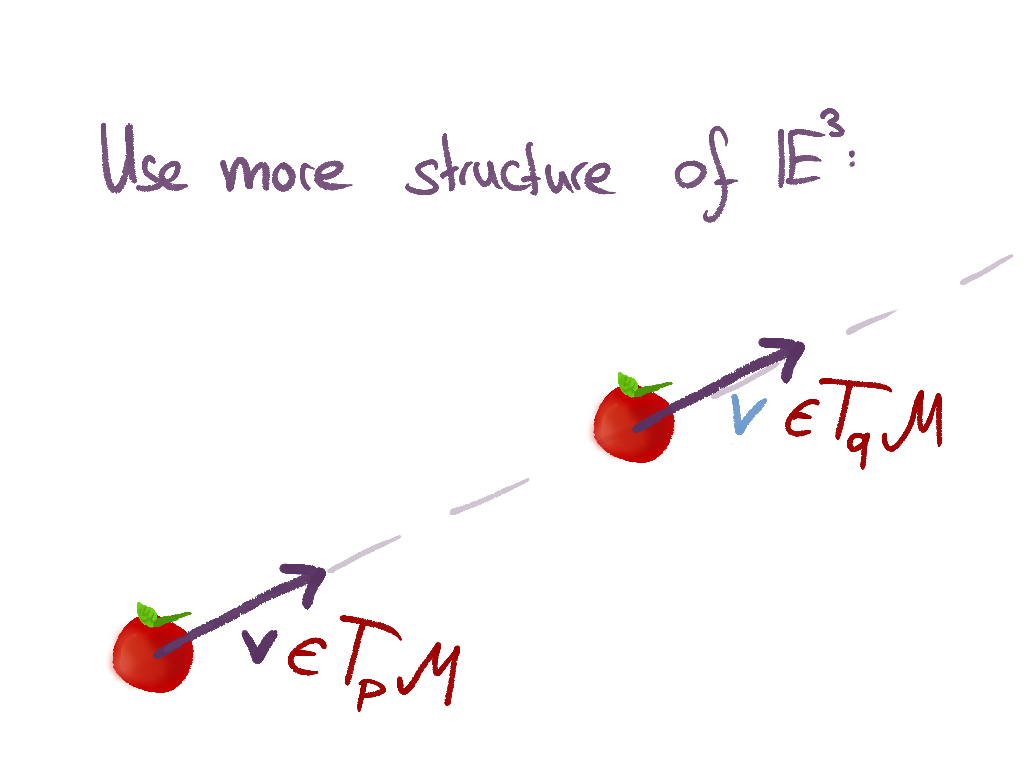 Use more structure of 𝔼³:
v ∈ T_q M
v ∈ T_p M